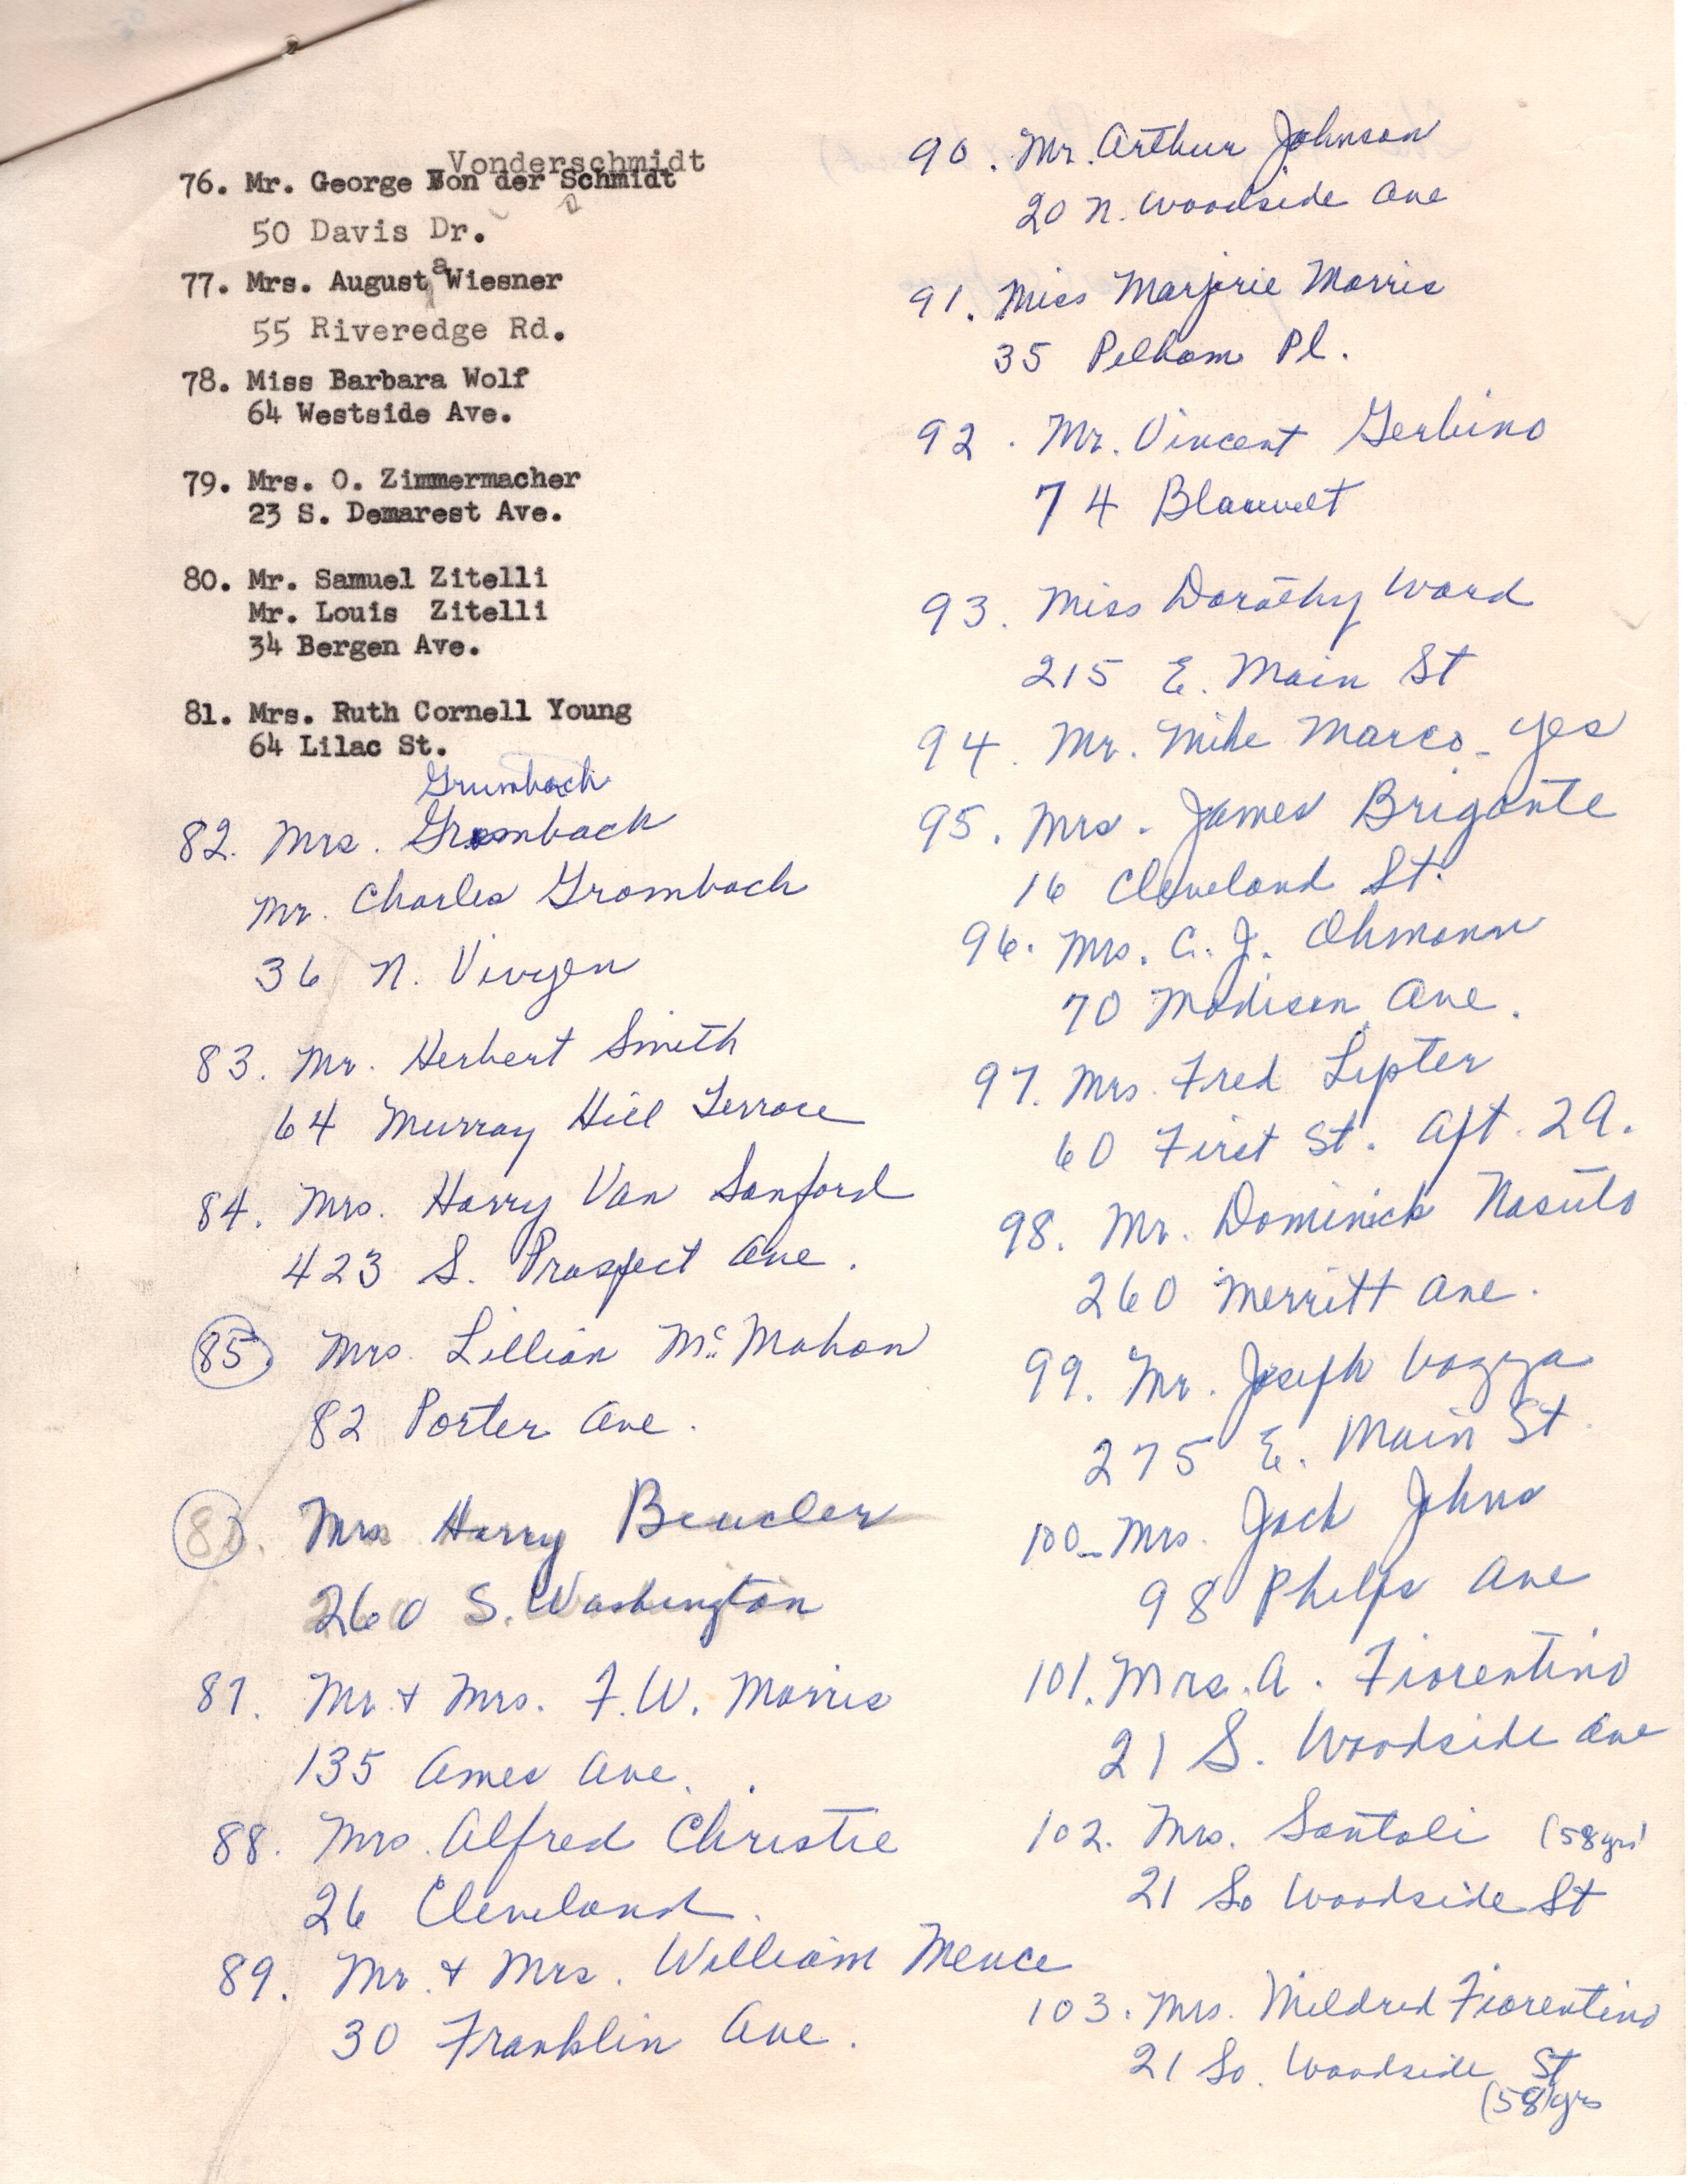 Vonderschmidt
76. Mr. George Von der Schmidt
50 Davis Dr.
77. Mrs. Augusta Wiesner
55 Riveredge Rd.
78. Miss Barbara Wolf
64 Westside Ave.
79. Mrs. O. Zimmermacher
23 S. Demarest Ave.
80. Mr. Samuel Zitelli
Mr. Louis Zitelli
34 Bergen Ave.
81. Mrs. Ruth Cornell Young
64 Lilac St.
Grumbach
82. Mrs. Grombach
Mr. Charles Grombach
36 N. Vivyen
83. Mr. Herbert Smith
64 Murray Hill Terrace
84. Mrs. Harry Van Sanford
423 S. Prospect Ave.
85. Mrs. Lillian McMahon
82 Porter Ave.
86. Mrs Harry Beucler
260 S. Washington
87. Mr. + Mrs. F.W. Morris
135 Ames Ave.
88. Mrs. Alfred Christie
26 Cleveland.
89. Mr. + Mrs. William Mence
30 Franklin Ave.
90. Mr. Arthur Johnson
20 N. Woodside Ave
91. Miss Marjorie Morris
35 Pelham Pl.
92. Mr. Vincent Gerbino
74 Blauvelt
93. Miss Dorothy Ward
215 E. Main St
94. Mr. Mike Marco - yes
95. Mrs. James Brigante
16 Cleveland St.
96. Mrs. C. J. Ohmann
70 Madison Ave.
97. Mrs. Fred Lepter
60 First St. Apt. 2A.
98. Mr. Dominick Nasuto
260 Merritt Ave.
99. Mr. Joseph Vozza
275 E. Main St.
100 - Mrs. Jack Johns
98 Phelps Ave
101. Mrs. A. Fiorentino
21 S. Woodside Ave
102. Mrs. Santoli (58 yrs)
21 So Woodside St
103. Mrs. Mildred Fiorentino
21 So. Woodside St
(58) yrs